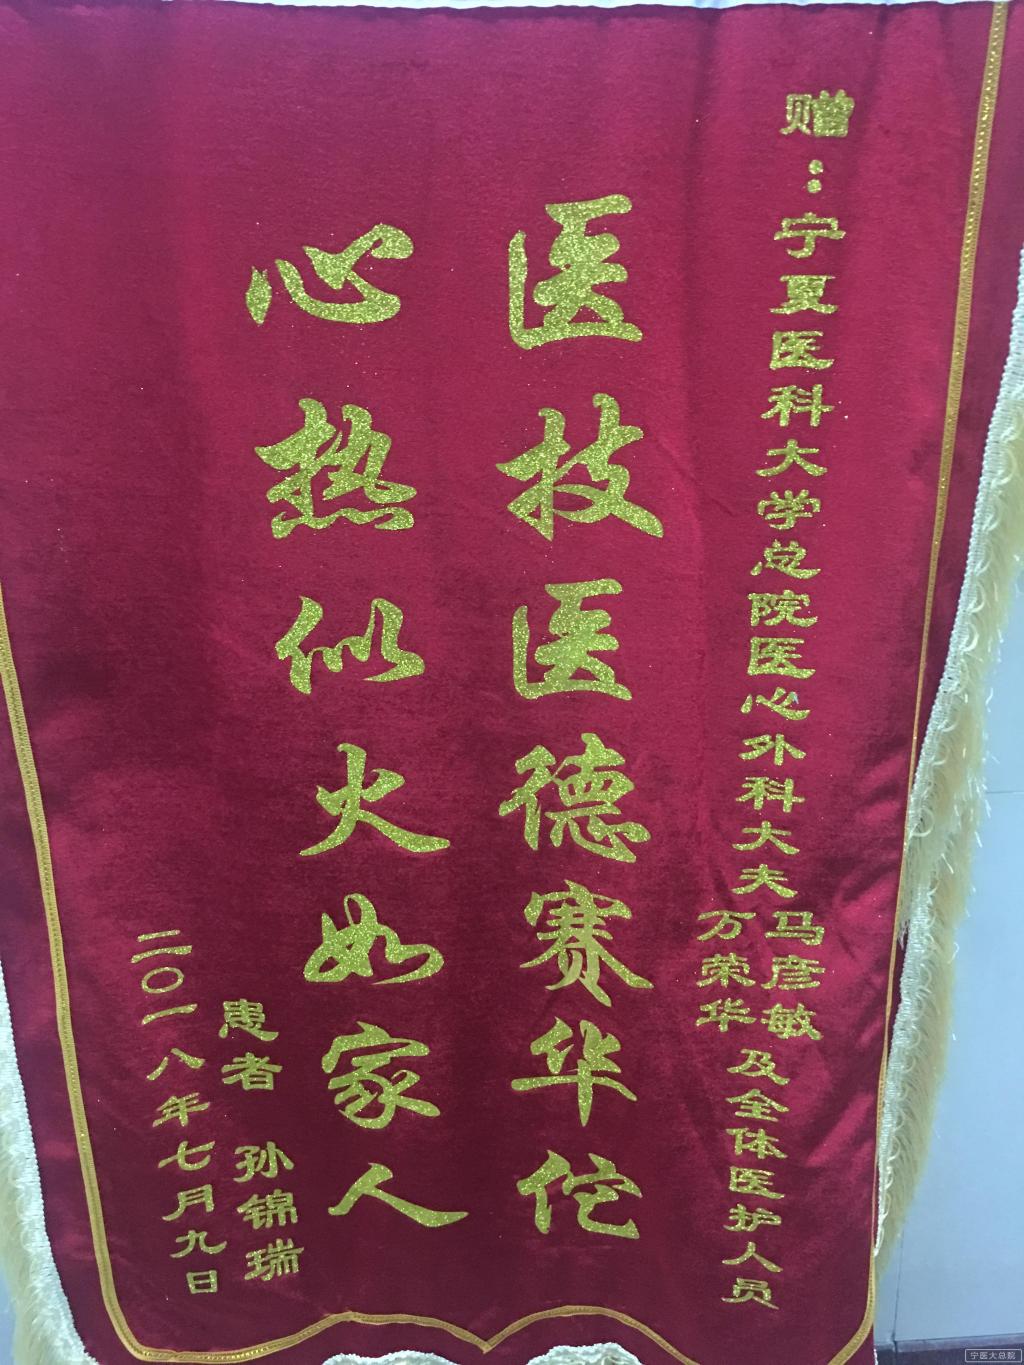 赠：宁夏医科大学总院医心外科大夫马彦敏万荣华及全体医护人员
医技医德赛华佗
心热似火如家人
患者 孙锦瑞
二〇一八年七月九日
宁医大总院